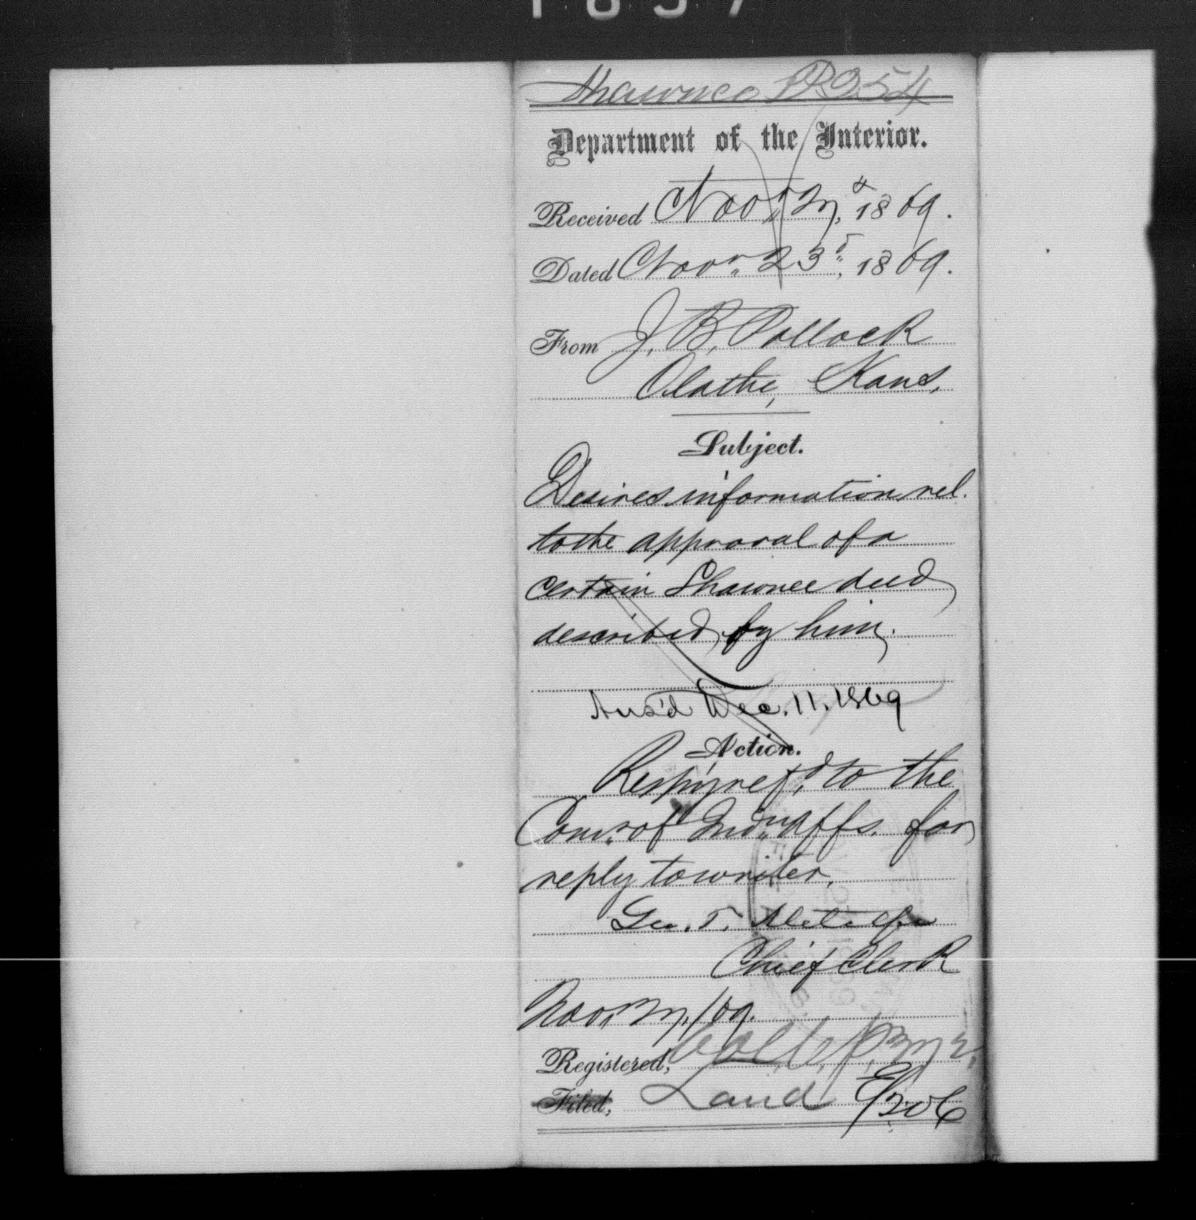 1 8 5 7
Shawnee P.254
Department of the Interior.
Received Nov. 27, 1869.
Dated Novr. 23d, 1869.
From J. B. Pollock
Olathe, Kans,
Subject.
Desires information rel.
to the approval of a
certain Shawnee deed
described by him,
Ans'd Dec. 11. 1869
Action.
Resp'y ref'd to the
Comr. of Ind. Affs. for
reply to writer.
Geo. T. Metcalfe
Chief Clerk
Nov. 27,/69.
Registered, Vol. 6. p.
Filed, Land 206